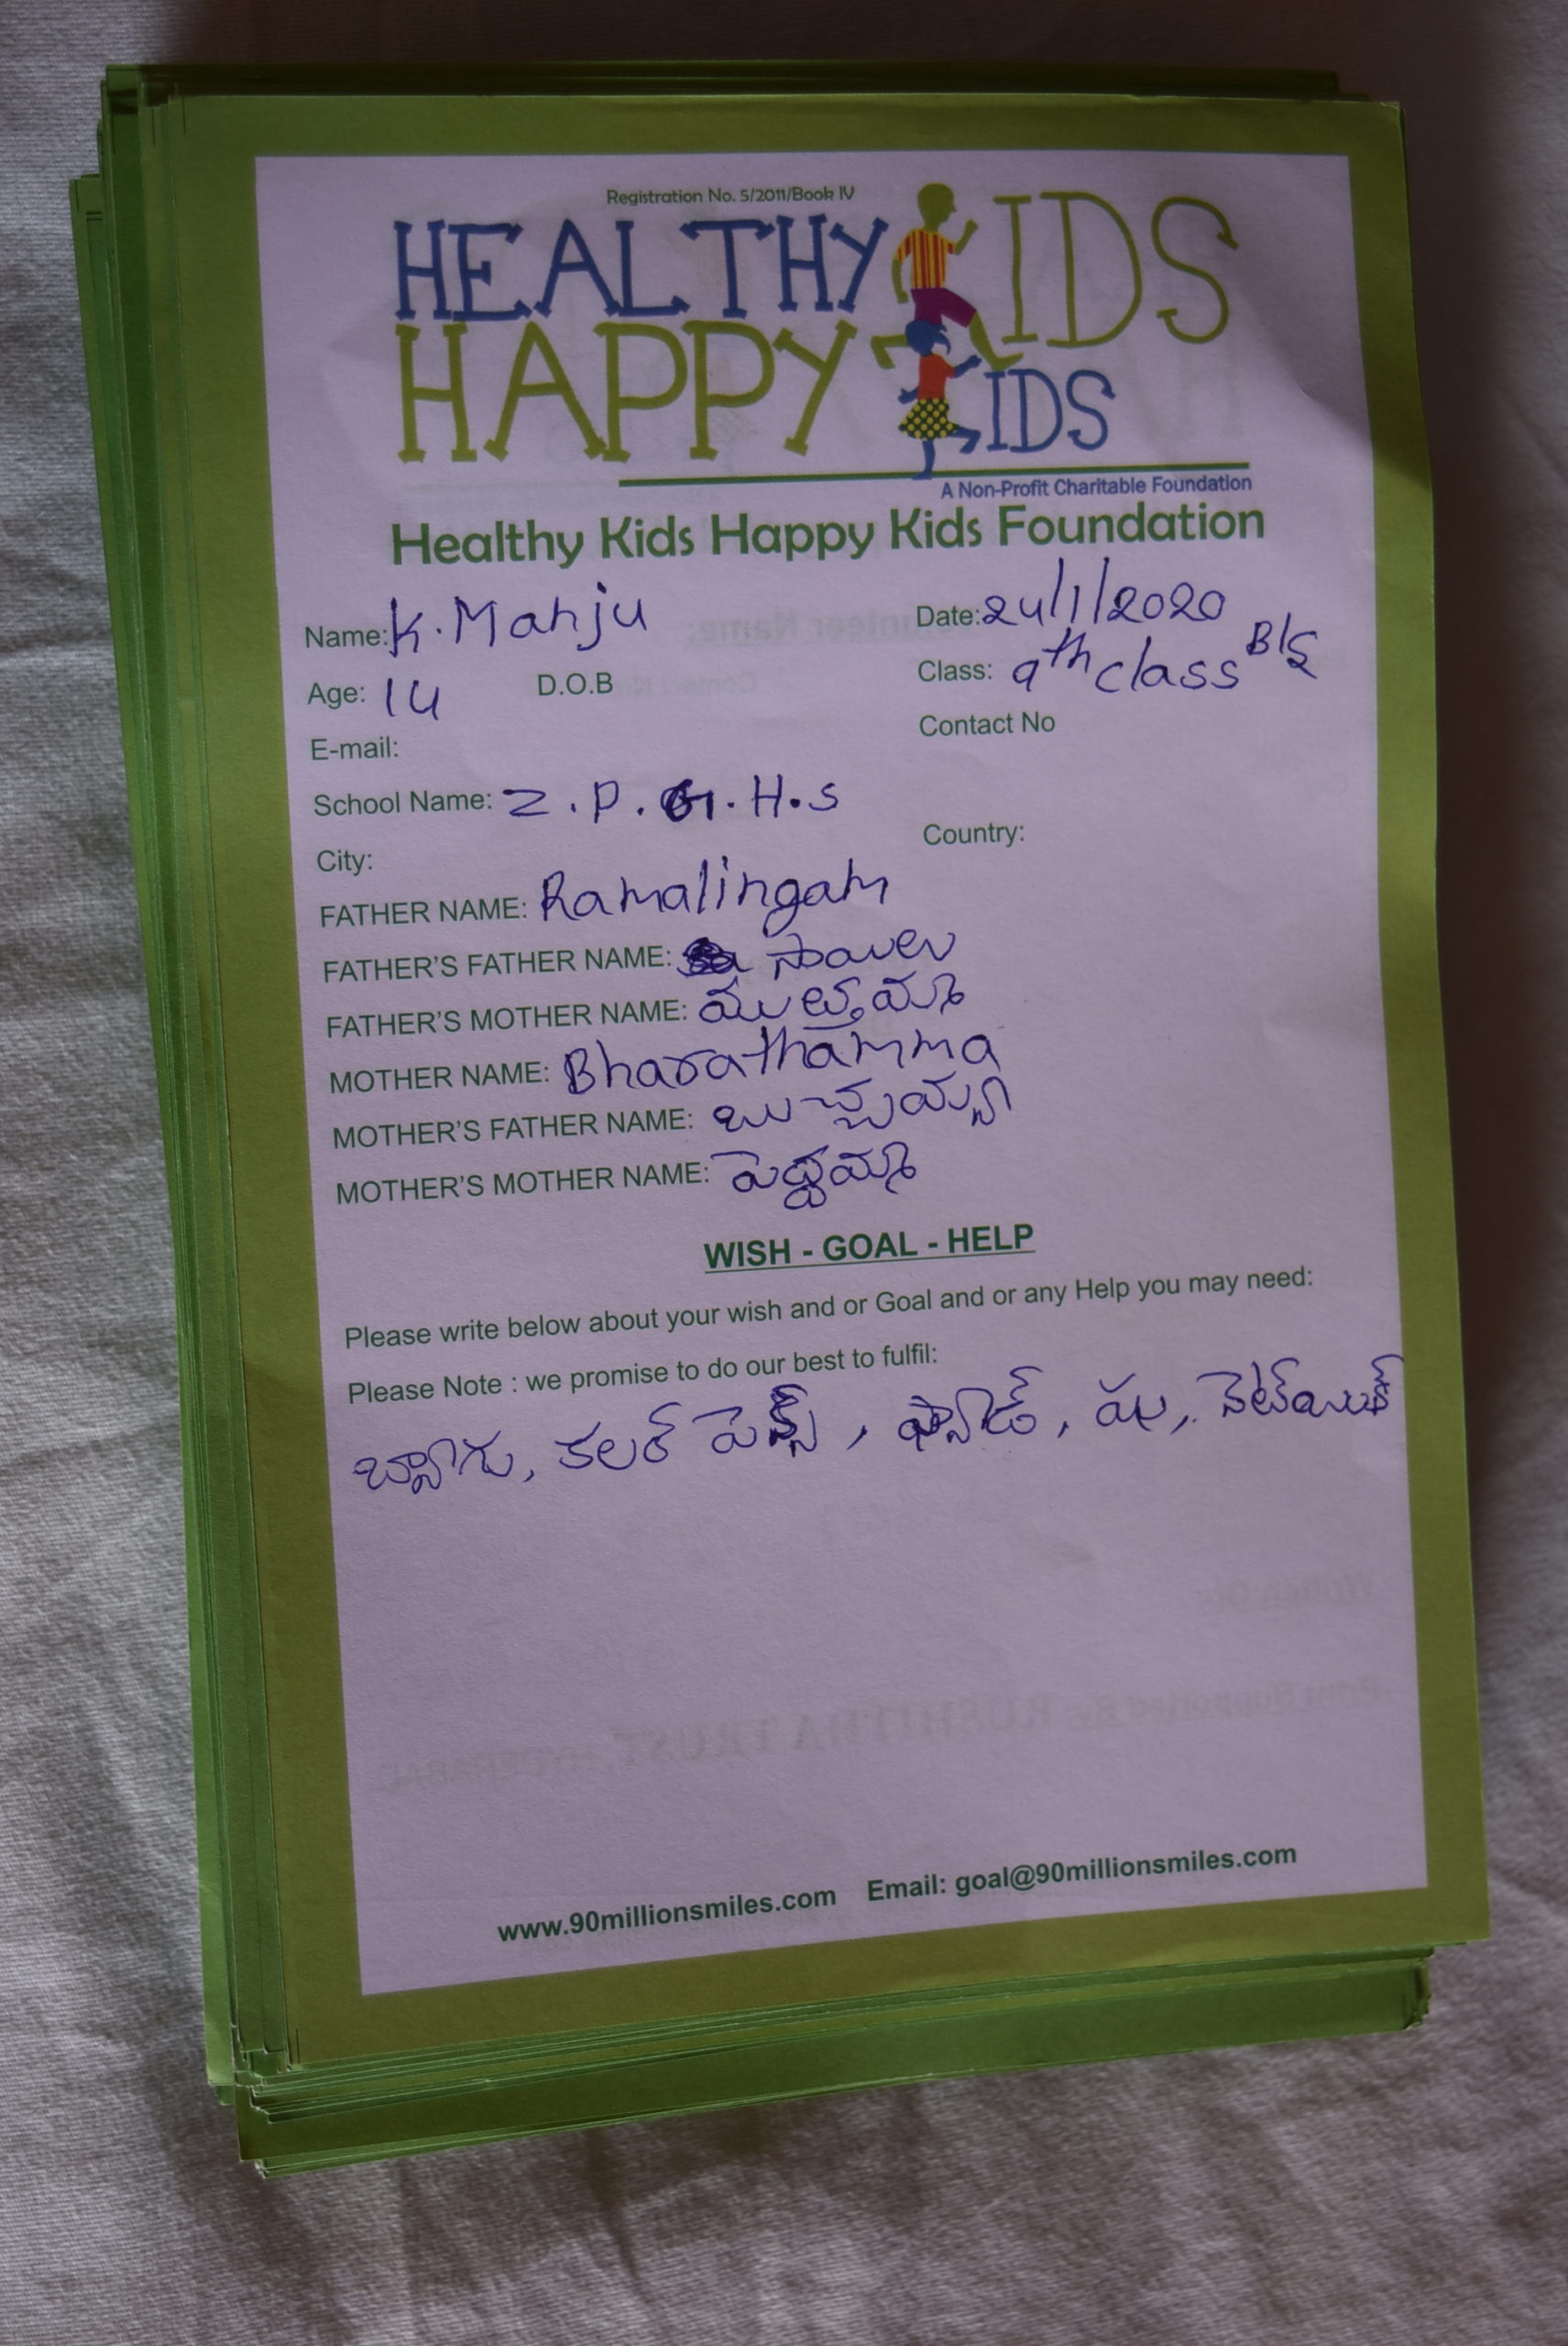 Registration No. 5/2011/Book IV
HEALTHY KIDS
HAPPY KIDS
A Non-Profit Charitable Foundation
Healthy Kids Happy Kids Foundation
Name: K. Manju Date: 24/1/2020
Age: 14 D.O.B Class: 9th class B/S
E-mail: Contact No
School Name: Z.P.G.H.S
City: Country:
FATHER NAME: Ramalingam
FATHER'S FATHER NAME:
FATHER'S MOTHER NAME: ముత్తమ్మ
MOTHER NAME: Bharathamma
MOTHER'S FATHER NAME: బుచ్చయ్య
MOTHER'S MOTHER NAME: పెద్దమ్మ
WISH - GOAL - HELP
Please write below about your wish and or Goal and or any Help you may need:
Please Note : we promise to do our best to fulfil:
బ్యాగు, కలర్ పెన్స్, ప్యాడ్, షు,
www.90millionsmiles.com Email: goal@90millionsmiles.com